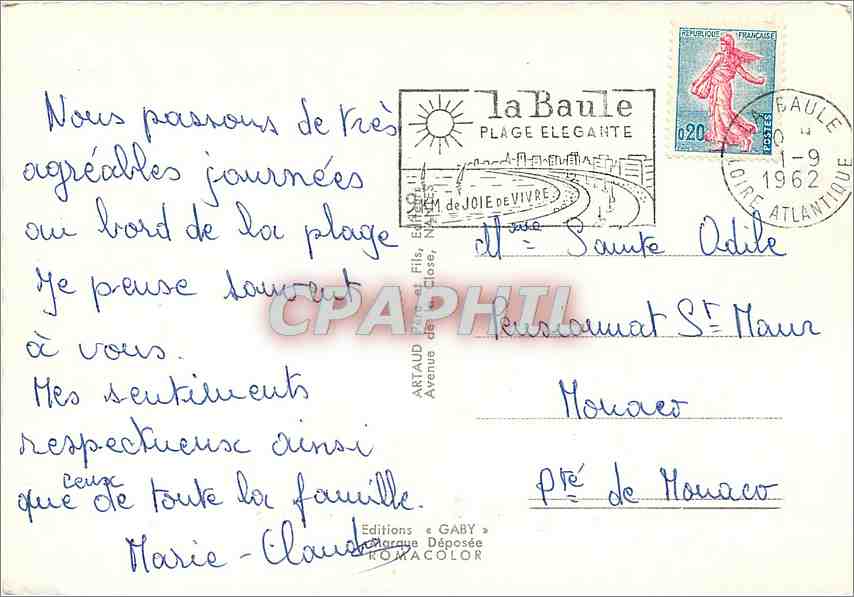 Nous passons de très
agréables journées
au bord de la plage
Je pense souvent
à vous.
Mes sentiments
respectueux ainsi
que ceux de toute la famille.
Marie-Claude
RÉPUBLIQUE FRANÇAISE
0,20
POSTES
la Baule
PLAGE ELEGANTE
9 KM de JOIE DE VIVRE
BAULE
1-9
1962
LOIRE ATLANTIQUE
ARTAUD Père et Fils, Editeurs
Avenue de la Close, NANTES
CPAPHIL
Mme Sainte Odile
Pensionnat St Maur
Monaco
Pté de Monaco
Editions « GABY »
Marque Déposée
ROMACOLOR